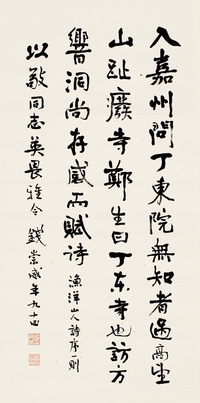 入嘉州問丁東院無知者過高望
山趾廢寺鄭生曰丁东寺也訪方
響洞尚存感而賦诗 漁洋山人詩序一則
以敬同志英畏雅令 錢崇威年九十四